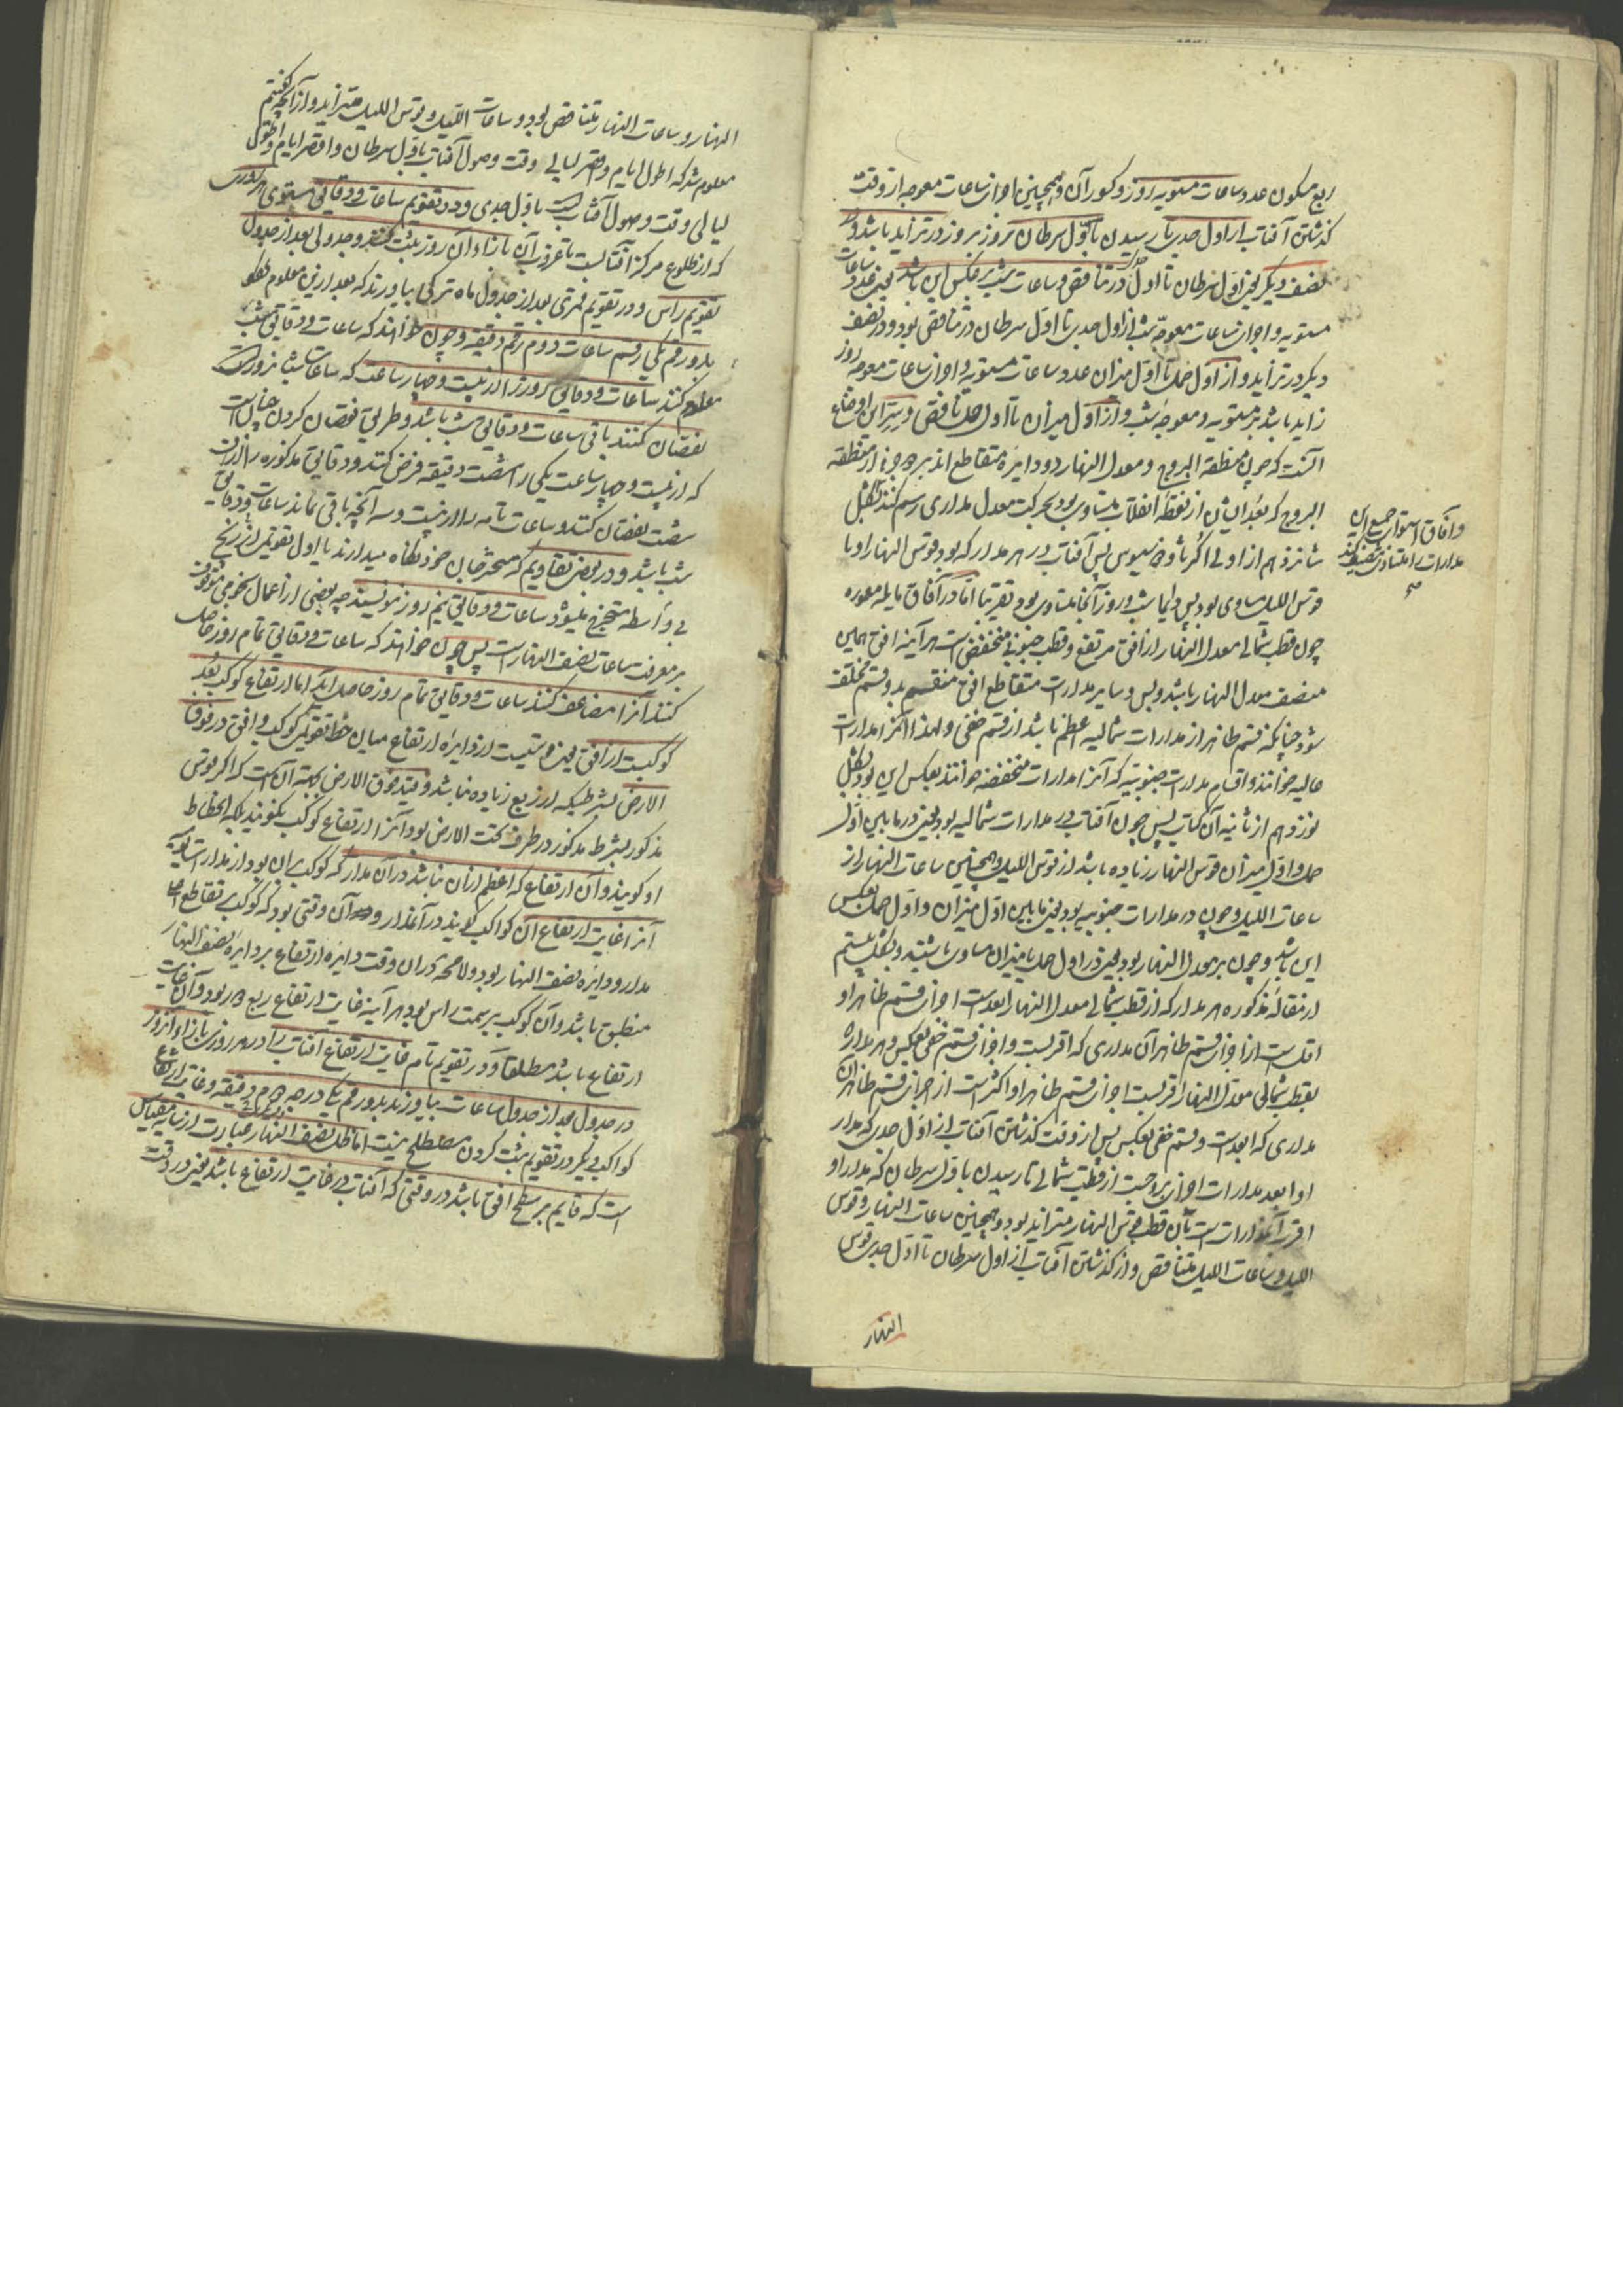 ربع مسکون عدد ساعات مستویه روز و کسور آن و همچنین اجزای ساعات معوجه از وقت
گذشتن آفتاب از اول جدی تا رسیدن باول سرطان روز بروز در تزاید باشد و در
نصف دیگر یعنی اول سرطان تا اول جدی در تناقص و ساعات شب بر عکس این باشد یعنی عدد ساعات
مستویه و اجزای ساعات معوجه شب از اول جدی تا اول سرطان در تناقص بود و در نصف
دیگر در تزاید و از اول حمل تا اول میزان عدد ساعات مستویه و اجزای ساعات معوجه روز
زاید باشد بر مستویه و معوجه شب و از اول میزان تا اول حمل ناقص و سر این اوضاع
آنست که چون منطقة البروج و معدل النهار دو دایره متقاطع اند هر جزء از منطقة
البروج که بعد ایشان از نقطه انقلاب متساوی بود بحرکت معدل مداری رسم کنند بشکل
شانزدهم از اولی اکر ثاوذوسیوس پس آفتاب در هر مدار که بود قوس النهار او با
قوس اللیل مساوی بود پس دایما شب و روز آنجا متساوی بود تقریبا اما در آفاق مایله معموره
چون قطب شمالی معدل النهار از افق مرتفع و قطب جنوبی منخفض است هر آینه افق همین
منصف معدل النهار باشد و بس و سایر مدارات متقاطع افق منقسم بدو قسم مختلف
شود چنانکه قسم ظاهر از مدارات شمالیه اعظم باشد از قسم خفی و لهذا آنرا مدارات
عالیه خوانند و اقسام مدارات جنوبیه که آنرا مدارات منخفضه خوانند بعکس این بود بشکل
نوزدهم از ثانیه آن کتاب پس چون آفتاب در مدارات شمالیه بود یعنی در ما بین اول
حمل و اول میزان قوس النهار زیاده باشد از قوس اللیل و همچنین ساعات النهار از
ساعات اللیل و چون در مدارات جنوبیه بود یعنی ما بین اول میزان و اول حمل بعکس
این باشد و چون بر معدل النهار بود یعنی در اول حمل یا میزان مساوی باشند و بشکل بیستم
از مقاله مذکوره هر مدار که از قطب شمالی معدل النهار ابعدست اجزای قسم ظاهر او
اقلست از اجزای قسم ظاهر آن مداری که اقربست و اجزای قسم خفی بعکس و هر مدار که
بقطب شمالی معدل النهار اقربست اجزای قسم ظاهر او اکثرست از اجزای قسم ظاهر آن
مداری که ابعدست و قسم خفی بعکس پس از وقت گذشتن آفتاب از اول جدی که مدار
او ابعد مدارات اجزای بروجست از قطب شمالی تا رسیدن باول سرطان که مدار او
اقرب آن مدارات است بآن قطب قوس النهار متزاید بود و همچنین ساعات النهار و قوس
اللیل و ساعات اللیل متناقص و از گذشتن آفتاب از اول سرطان تا اول جدی قوس
النهار
و آفاق استوا جمیع این
مدارات را متساوی تنصیف کند
النهار و ساعات النهار متناقص بود و ساعات اللیل و قوس اللیل متزاید و از آنچه گفتیم
معلوم شد که اطول ایام و اقصر لیالی وقت وصول آفتاب باول سرطان و اقصر ایام و اطول
لیالی وقت وصول آفتاب است باول جدی و در تقویم ساعات و دقایق مستوی هر روزی
که از طلوع مرکز آفتابست تا غروب آن بازاء آن روز ثبت کنند و جدولی بعد از جدول
تقویم راس و در تقویم قمری بعد از جدول ماه ترکی بیاورند که بعد ازین معلوم شود
بدو رقم یکی رقم ساعات و دوم رقم دقیقه و چون خواهند که ساعات و دقایق شب
معلوم کنند ساعات و دقایق روز را از بیست و چهار ساعت که ساعات شبانروزیست
نقصان کنند باقی ساعات و دقایق شب باشد و طریق نقصان کردن چنان است
که از بیست و چهار ساعت یکی را شصت دقیقه فرض کنند و دقایق مذکوره را از آن
شصت نقصان کنند و ساعات تامه را از بیست و سه آنچه باقی ماند ساعات و دقایق
شب باشد و در بعضی تقاویم که مستخرجان خود نگاه میدارند یا اول تقویمی از زیج
بی واسطه مستخرج میشود ساعات و دقایق نیم روز نویسند چه بعضی از اعمال نجومی موقوف
بر معرفت ساعات نصف النهارست پس چون خواهند که ساعات و دقایق تمام روز حاصل
کنند آنرا مضاعف کنند ساعات و دقایق تمام روز حاصل آید اما ارتفاع کوکب بعد
کوکبست از افق یعنی قوسیست از دایره ارتفاع میان خط تقویمی کوکب و افق در فوق
الارض بشرطیکه از ربع زیاده نباشد و قید فوق الارض بجهة آنست که اگر قوس
مذکور بشرط مذکور در طرف تحت الارض بود آنرا ارتفاع کوکب نگویند بلکه انحطاط
او گویند و آن ارتفاع که اعظم از آن نباشد در آن مدار که کوکب بر آن بود از مدارات یومیه
آنرا غایت ارتفاع آن کواکب گویند در آن مدار و آن وقتی بود که کوکب بر تقاطع
مدار و دایره نصف النهار بود و لا محاله در آن وقت دایره ارتفاع بر دایره نصف النهار
منطبق باشد و آن کوکب بر سمت راس بود هر آینه غایت ارتفاع ربع دور بود و آن غایت
ارتفاع باشد مطلقا و در تقویم تام غایت ارتفاع آفتاب را در هر روزی بازاء آنروز
در جدول بعد از جدول ساعات بیاورند بدو رقم یکی درجه و دوم دقیقه و غایت ارتفاع
کواکب دیگر در تقویم ثبت کردن مصطلح نیست اما ظل نصف النهار عبارت از سایه مقیاسی
است که قایم بر سطح افق باشد در وقتی که آفتاب در غایت ارتفاع باشد یعنی در وقت